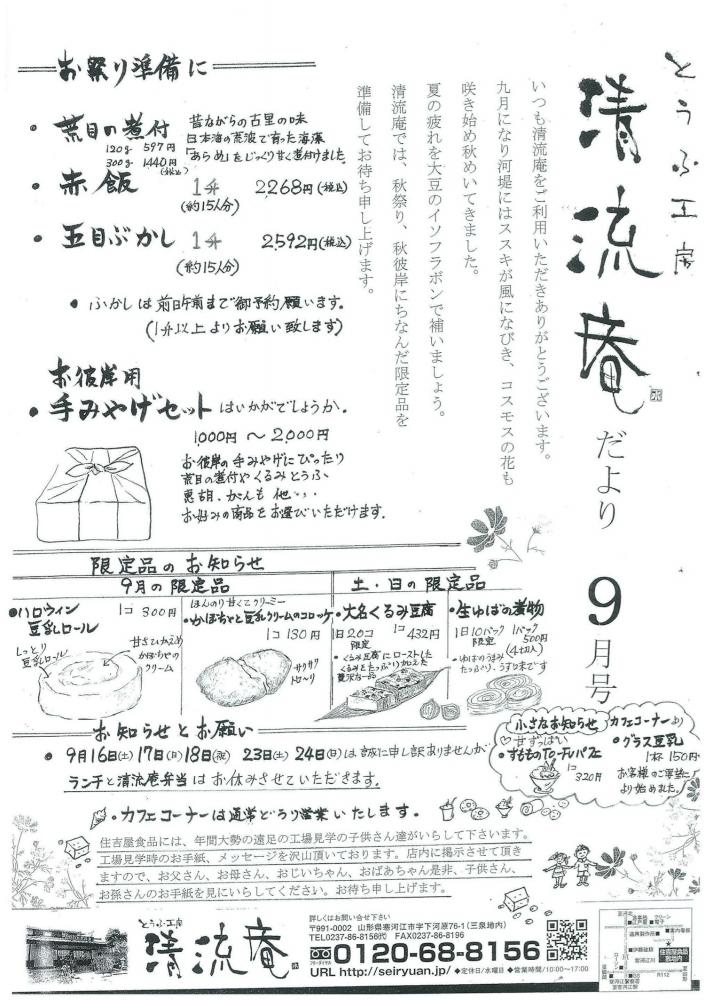 とうふ工房
清流庵
だより
9月号
いつも清流庵をご利用いただきありがとうございます。
九月になり河堤にはススキが風になびき、コスモスの花も
咲き始め秋めいてきました。
夏の疲れを大豆のイソフラボンで補いましょう。
清流庵では、秋祭り、秋彼岸にちなんだ限定品を
準備してお待ち申し上げます。
お祭り準備に
・荒目の煮付
120g 597円
300g 1440円(税込)
昔ながらの古里の味
日本海の荒波で育った海藻
「あらめ」をじっくり甘く煮付けました。
・赤飯 1升 2268円(税込)
(約15人分)
・五目ぶかし 1升 2592円(税込)
(約15人分)
・ふかしは前日午前まで御予約願います。
(1升以上よりお願い致します)
お彼岸用
・手みやげセットはいかがでしょうか.
1,000円〜2,000円
お彼岸の手みやげにぴったり
荒目の煮付やくるみとうふ、
恵胡、がんも 他・・・
お好みの商品をお選びいただけます.
限定品のお知らせ
9月の限定品
土・日の限定品
・ハロウィン 1コ 300円
豆乳ロール
しっとり
豆乳ロール
甘さひかえめ
かぼちゃの
クリーム
ほんのり甘くてクリーミー
・かぼちゃと豆乳クリームのコロッケ
1コ 130円
サクサク
トロ〜リ
・大名くるみ豆腐
1日20コ
限定
1コ 432円
・くるみ豆腐にローストした
くるみをたっぷり加えた
贅沢な一品
・生ゆばの煮物
1日10パック
限定
1パック
500円
(4切入)
・ゆばのうまみ
たっぷり、うす口末です
お知らせとお願い
・9月16日(土)17日(日)18日(祝) 23日(土)24日(日)は誠に申し訳ありませんが
ランチと清流庵弁当はお休みさせていただきます.
・カフェコーナーは通常どうり営業いたします.
小さなお知らせ
♡甘ずっぱい
・すももTo-Fuパフェ
1コ 320円
カフェコーナーより
・グラス豆乳
1杯 150円
お客様のご要望に
より始めました.
住吉屋食品には、年間大勢の遠足の工場見学の子供さん達がいらして下さいます。
工場見学時のお手紙、メッセージを沢山頂いております。店内に掲示させて頂き
ますので、お父さん、お母さん、おじいちゃん、おばあちゃん是非、子供さん、
お孫さんのお手紙を見にいらしてください。お待ち申し上げます。
とうふ工房
清流庵
詳しくはお問い合せ下さい
〒991-0002 山形県寒河江市字下河原76-1(三泉地内)
TEL0237-86-8156代 FAX0237-86-8196
フリーダイヤル 0120-68-8156
URL http://seiryuan.jp/ ◆定休日/水曜日 ◆営業時間/10:00〜17:00
寒河江川
R112